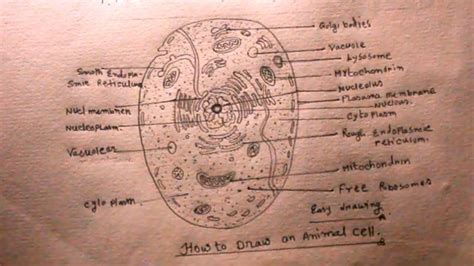 Golgi bodies
Vacuole
Lysosome
Mitochondrin
Nucleolus
Plasama membrane
Nucous.
Cytoplasm
Rough Endoplasmic
reticulum.
Mitochondrin
Free Ribosomes
Smoth Endopla-
smic Reticulum
Nucl membranen
Nucleoplasm
Vacuolear
Cyto plasm
Easy drawing
How to Draw an Animal Cell.